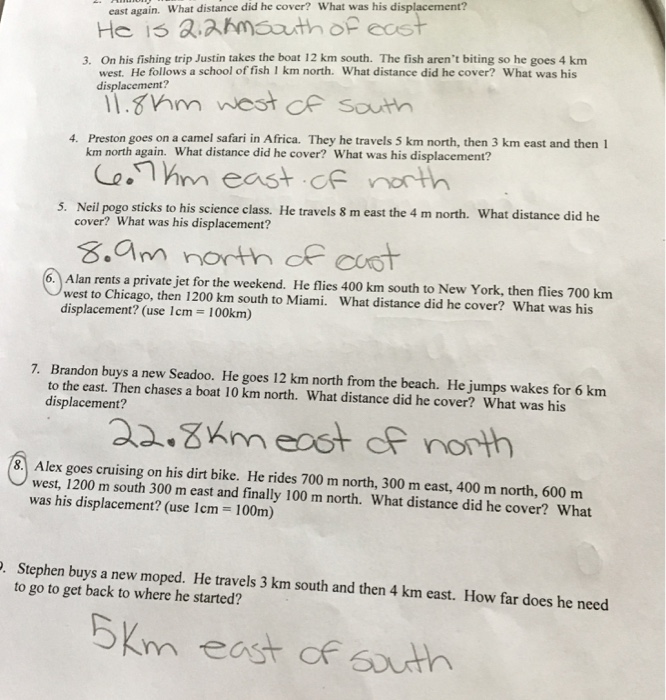 east again. What distance did he cover? What was his displacement?
He is 2.2km south of east
3. On his fishing trip Justin takes the boat 12 km south. The fish aren't biting so he goes 4 km
west. He follows a school of fish 1 km north. What distance did he cover? What was his
displacement?
11.8km west of south
4. Preston goes on a camel safari in Africa. They he travels 5 km north, then 3 km east and then 1
km north again. What distance did he cover? What was his displacement?
6.7km east of north
5. Neil pogo sticks to his science class. He travels 8 m east the 4 m north. What distance did he
cover? What was his displacement?
8.9m north of east
6. Alan rents a private jet for the weekend. He flies 400 km south to New York, then flies 700 km
west to Chicago, then 1200 km south to Miami. What distance did he cover? What was his
displacement? (use 1cm = 100km)
7. Brandon buys a new Seadoo. He goes 12 km north from the beach. He jumps wakes for 6 km
to the east. Then chases a boat 10 km north. What distance did he cover? What was his
displacement?
22.8km east of north
8. Alex goes cruising on his dirt bike. He rides 700 m north, 300 m east, 400 m north, 600 m
west, 1200 m south 300 m east and finally 100 m north. What distance did he cover? What
was his displacement? (use 1cm = 100m)
. Stephen buys a new moped. He travels 3 km south and then 4 km east. How far does he need
to go to get back to where he started?
5km east of south